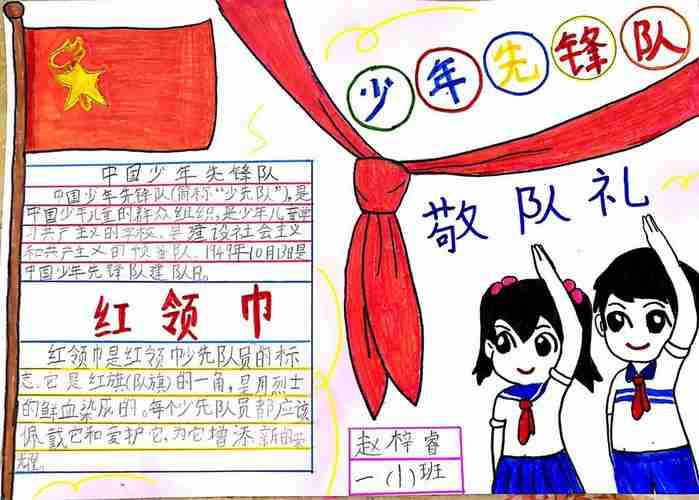 少年先锋队
敬队礼
中国少年先锋队
中国少年先锋队(简称"少先队"),是
中国少年儿童的群众组织,是少年儿童学
习共产主义的学校,是建设社会主义
和共产主义的预备队。1949年10月13日是
中国少年先锋队建队日。
红领巾
红领巾是红领巾少先队员的标
志。它是红旗(队旗)的一角,是用烈士
的鲜血染成的。每个少先队员都应该
佩戴它和爱护它,为它增添新的
光耀。
赵梓睿
一(1)班